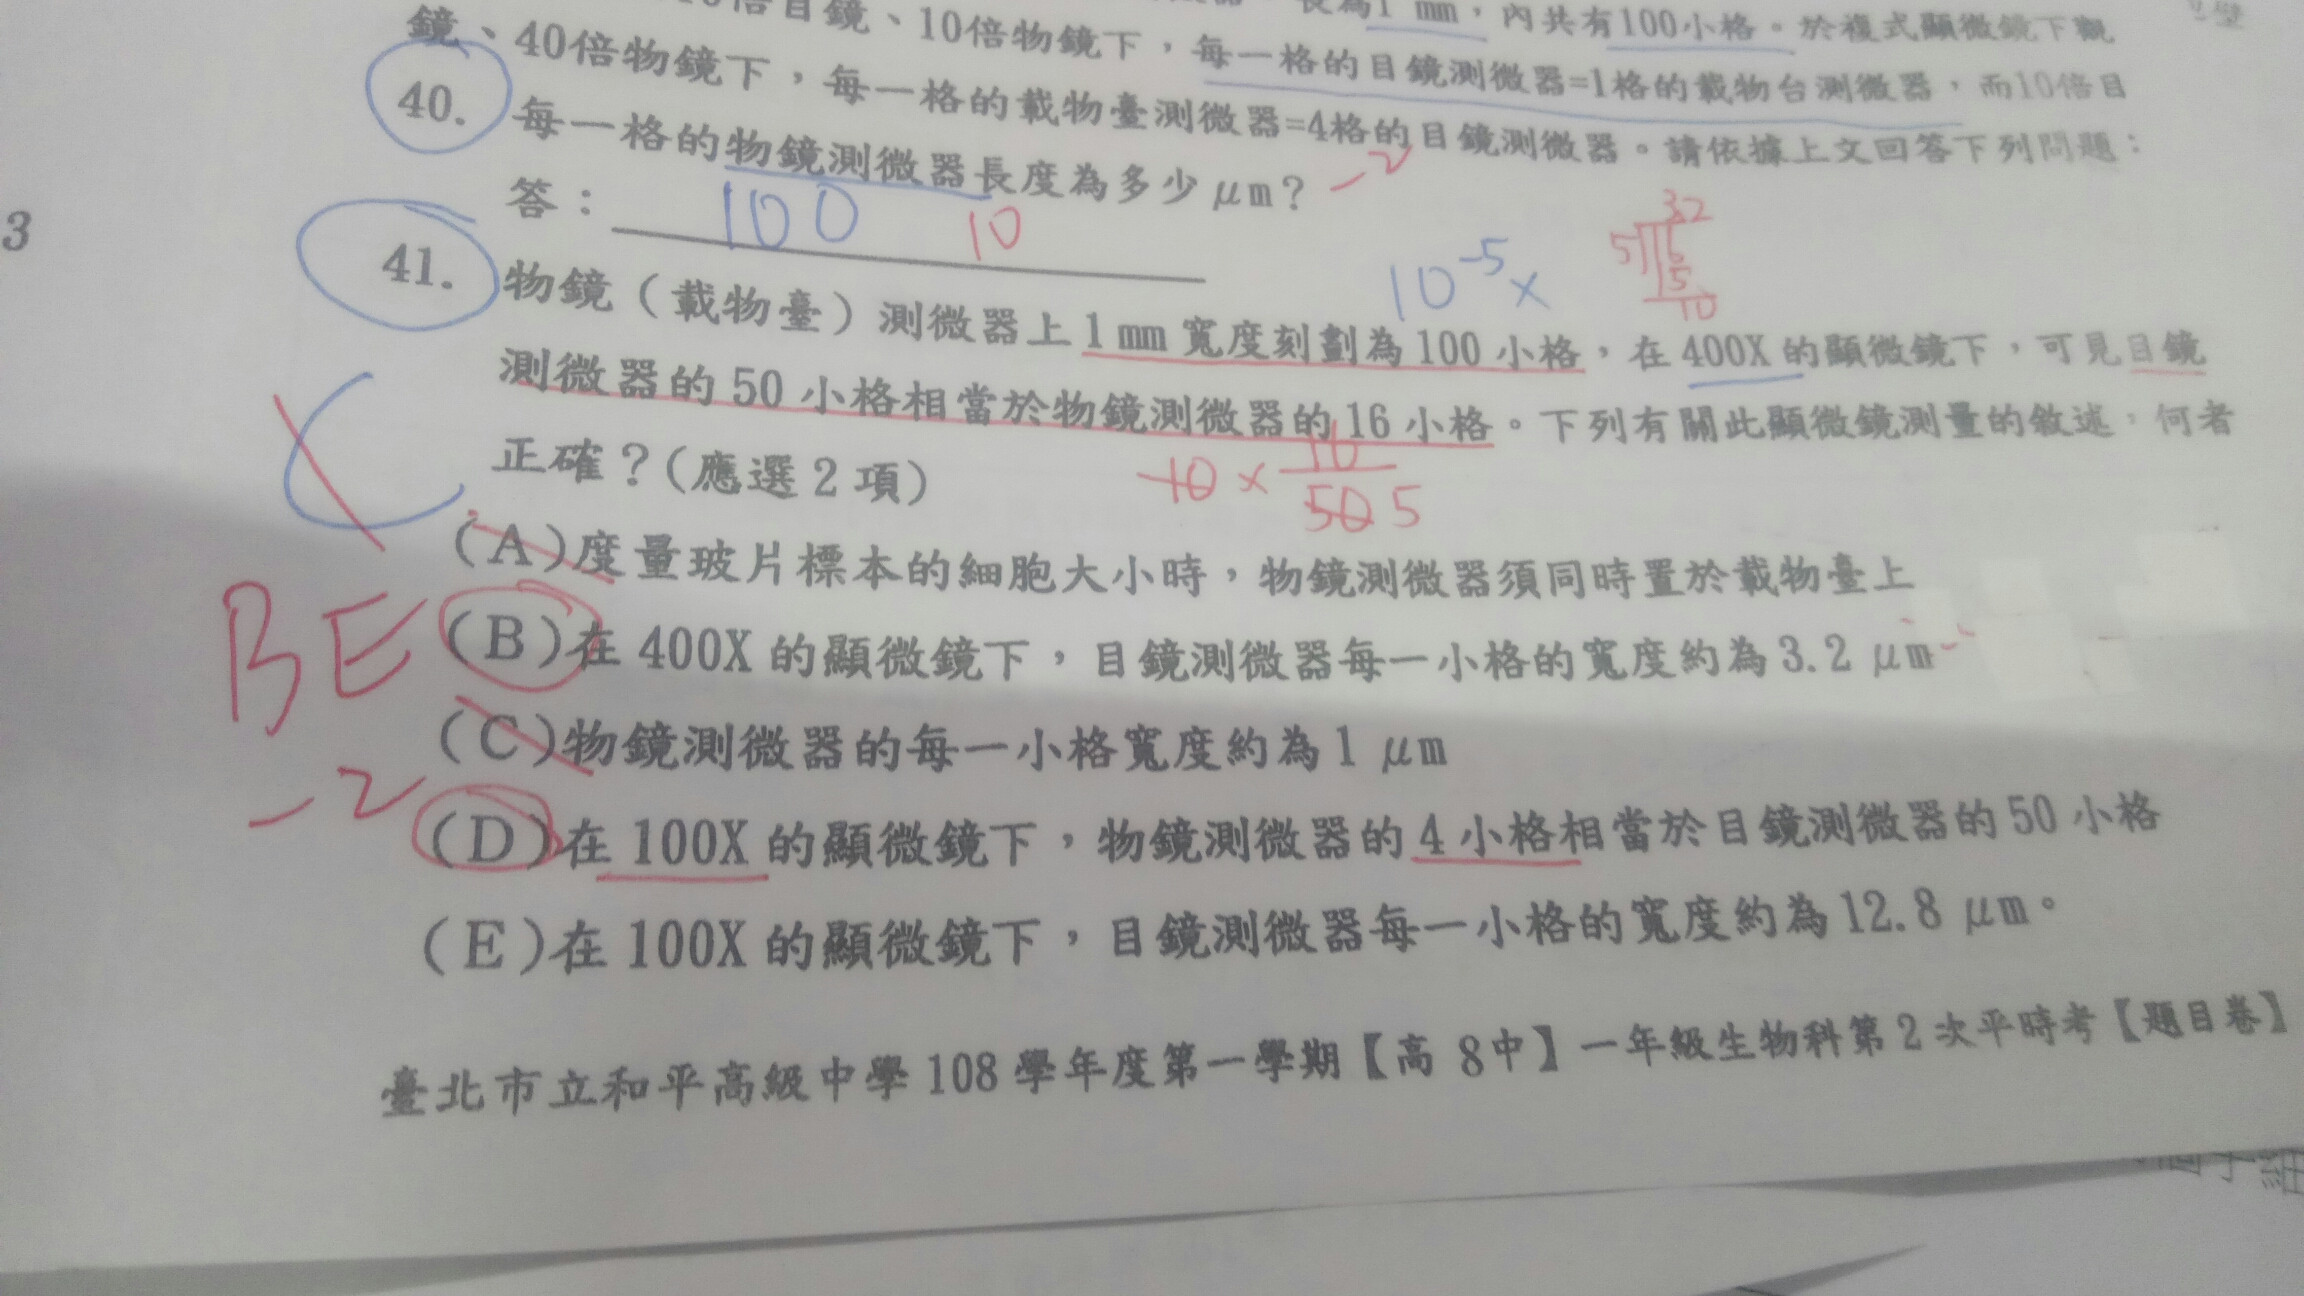 倍目鏡、10倍物鏡下，每一格的目鏡測微器=1格的載物台測微器，而10倍目
長為1 mm，內共有100小格。於複式顯微鏡下觀
鏡、40倍物鏡下，每一格的載物臺測微器=4格的目鏡測微器。請依據上文回答下列問題：
40. 每一格的物鏡測微器長度為多少 μm？ -2
答： 100 10
3
41. 物鏡（載物臺）測微器上 1 mm 寬度刻劃為 100 小格，在 400X 的顯微鏡下，可見目鏡
10⁻⁵ x
測微器的 50 小格相當於物鏡測微器的 16 小格。下列有關此顯微鏡測量的敘述，何者
正確？(應選 2 項)
C
(A)度量玻片標本的細胞大小時，物鏡測微器須同時置於載物臺上
BE
(B)在 400X 的顯微鏡下，目鏡測微器每一小格的寬度約為 3.2 μm
(C)物鏡測微器的每一小格寬度約為 1 μm
-2
(D)在 100X 的顯微鏡下，物鏡測微器的 4 小格相當於目鏡測微器的 50 小格
(E)在 100X 的顯微鏡下，目鏡測微器每一小格的寬度約為 12.8 μm。
臺北市立和平高級中學 108 學年度第一學期【高 8中】一年級生物科第 2 次平時考【題目卷】